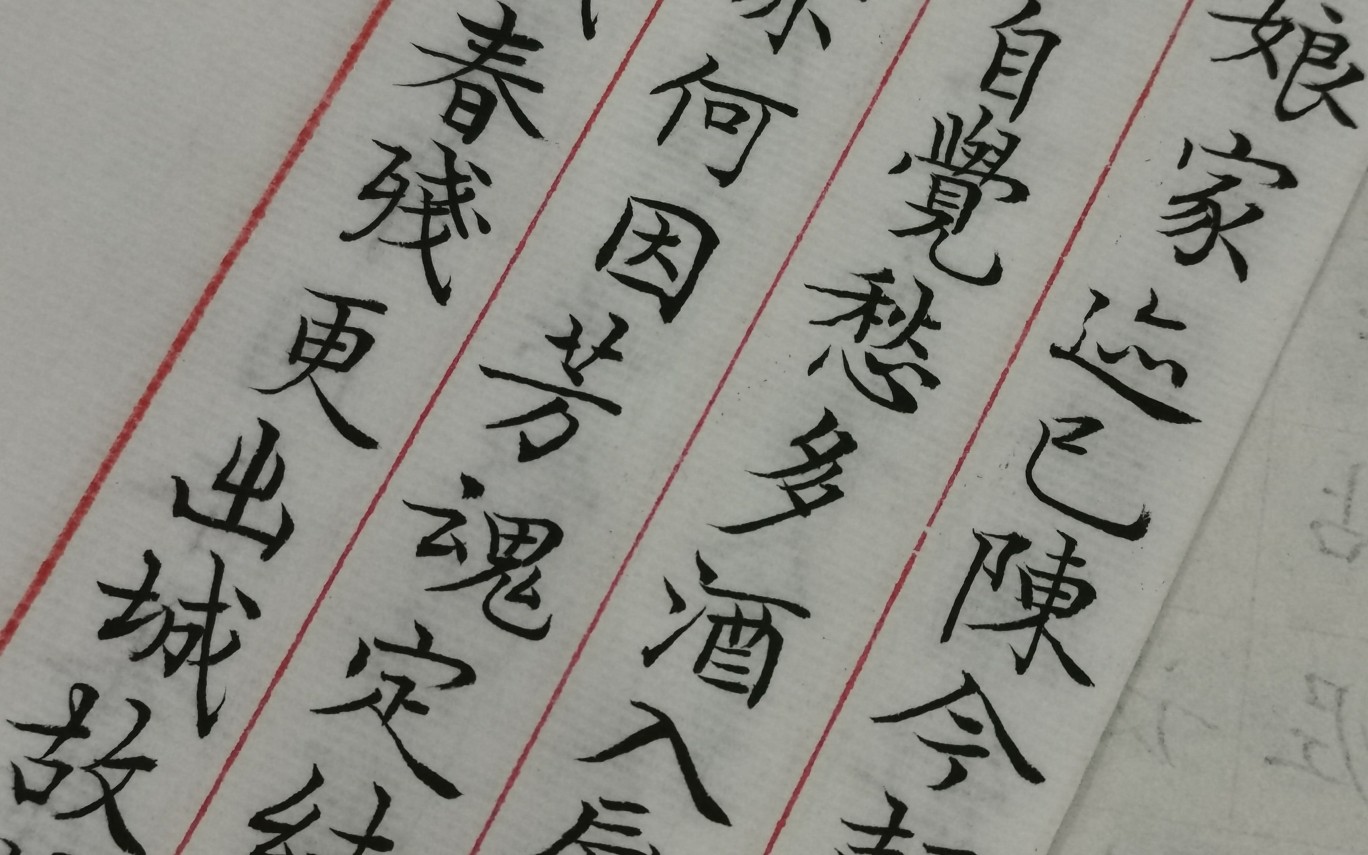 娘家迹已陳今
自覺愁多酒入
何因芳魂定結
春殘更出城故